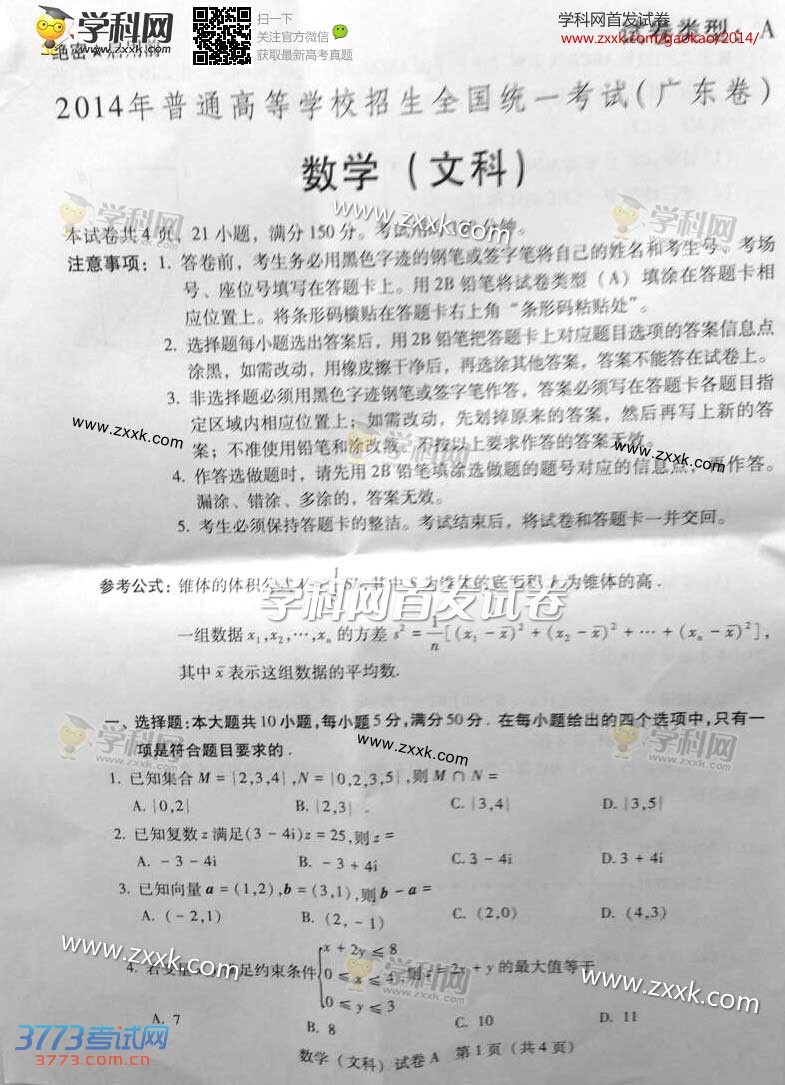 学科网
WWW.ZXXK.COM
扫一下
关注官方微信
获取最新高考真题
学科网首发试卷
www.zxxk.com/gaokao/2014/
试卷类型：A
绝密★启用前
2014年普通高等学校招生全国统一考试(广东卷)
数学(文科)
本试卷共4页，21小题，满分150分。考试
注意事项：1. 答卷前，考生务必用黑色字迹的钢笔或签字笔将自己的姓名和考生号、考场
号、座位号填写在答题卡上。用2B铅笔将试卷类型（A）填涂在答题卡相
应位置上。将条形码横贴在答题卡右上角“条形码粘贴处”。
2. 选择题每小题选出答案后，用2B铅笔把答题卡上对应题目选项的答案信息点
涂黑，如需改动，用橡皮擦干净后，再选涂其他答案，答案不能答在试卷上。
3. 非选择题必须用黑色字迹钢笔或签字笔作答，答案必须写在答题卡各题目指
定区域内相应位置上；如需改动，先划掉原来的答案，然后再写上新的答
案；不准使用铅笔和涂改液。不按以上要求作答的答案无效。
4. 作答选做题时，请先用2B铅笔填涂选做题的题号对应的信息点，再作答。
漏涂、错涂、多涂的，答案无效。
5. 考生必须保持答题卡的整洁。考试结束后，将试卷和答题卡一并交回。
参考公式：锥体的体积公式V=1/3Sh,其中S为锥体的底面积,h为锥体的高.
学科网首发试卷
一组数据x₁,x₂,…,xₙ的方差s²=1/n[(x₁-x̄)²+(x₂-x̄)²+…+(xₙ-x̄)²],
其中x̄表示这组数据的平均数.
一、选择题:本大题共10小题,每小题5分,满分50分. 在每小题给出的四个选项中,只有一
项是符合题目要求的.
1. 已知集合M={2,3,4},N={0,2,3,5},则M∩N=
A. {0,2} B. {2,3} C. {3,4} D. {3,5}
2. 已知复数z满足(3-4i)z=25,则z=
A. -3-4i B. -3+4i C. 3-4i D. 3+4i
3. 已知向量a=(1,2),b=(3,1),则b-a=
A. (-2,1) B. (2,-1) C. (2,0) D. (4,3)
4. 若变量 足约束条件 {x+2y≤8
0≤x≤4 ,则z=2x+y的最大值等于
0≤y≤3
A. 7 B. 8 C. 10 D. 11
数学(文科)试卷A 第1页(共4页)
3773考试网
3773.com.cn
www.zxxk.com
www.zxxk.com
www.zxxk.com
www.zxxk.com
www.zxxk.com
www.zxxk.com